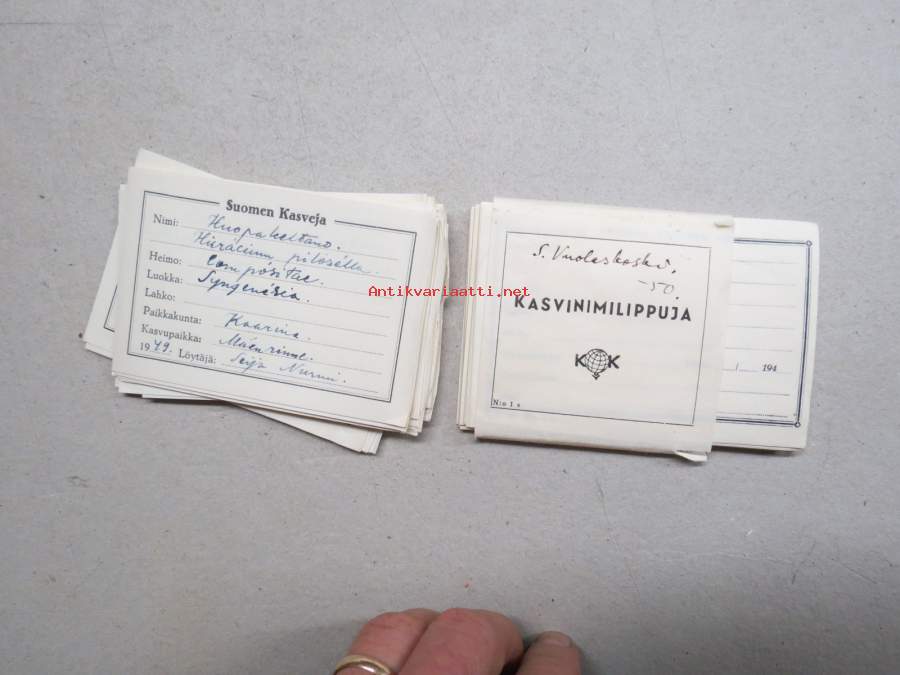 Suomen Kasveja
Nimi: Huopakeltano.
Hiirácium pilosélla.
Heimo: Compósitae.
Luokka: Syngenésia.
Lahko:
Paikkakunta: Kaarina.
Kasvupaikka: Mäenrinne.
1949. Löytäjä: Seija Nurmi.
S. Vuoleskoski.
-50.
KASVINIMILIPPUJA
K K
N:o 1 a
194
Antikvariaatti.net